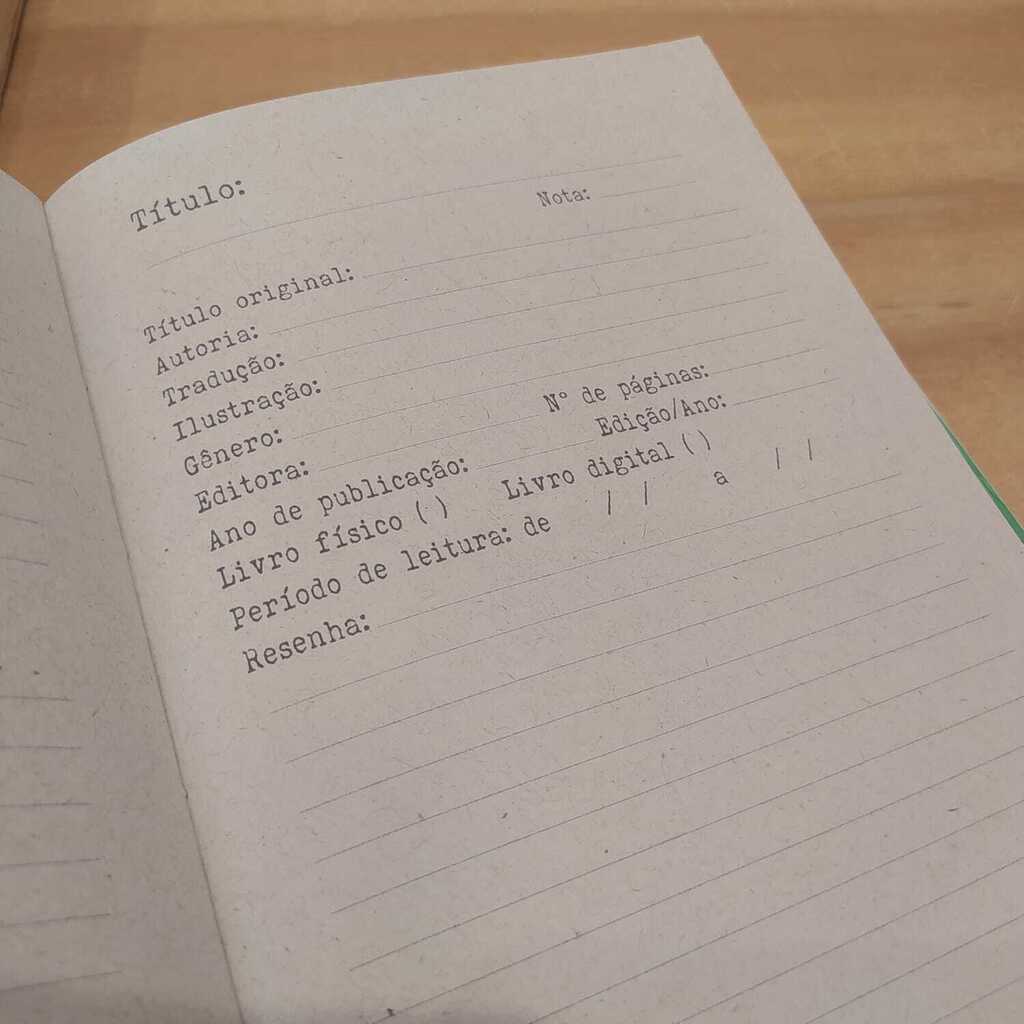 Título:
Nota:
Título original:
Autoria:
Tradução:
Ilustração:
Gênero:
Editora: Nº de páginas:
Ano de publicação: Edição/Ano:
Livro físico ( ) Livro digital ( )
Período de leitura: de / / a / /
Resenha: